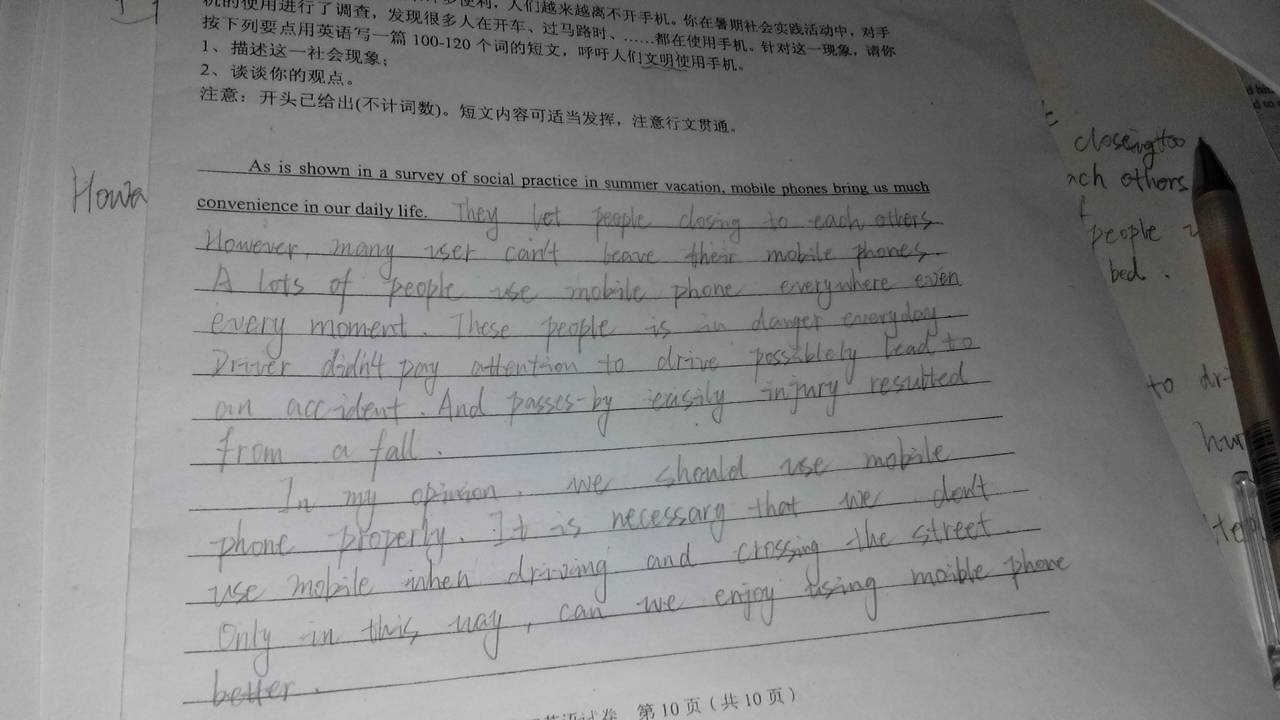 多便利，人们越来越离不开手机。你在暑期社会实践活动中，对手
机的使用进行了调查，发现很多人在开车、过马路时、……都在使用手机。针对这一现象，请你
按下列要点用英语写一篇 100-120 个词的短文，呼吁人们文明使用手机。
1、描述这一社会现象；
2、谈谈你的观点。
注意：开头已给出(不计词数)。短文内容可适当发挥，注意行文贯通。
As is shown in a survey of social practice in summer vacation, mobile phones bring us much
convenience in our daily life. They let people closing to each others
However, many user can't leave their mobile phones.
A lots of people use mobile phone everywhere even
every moment. These people is in danger everyday.
Driver didn't pay attention to drive possiblely lead to
an accident. And passes-by easily injury resulted
from a fall.
In my opinion, we should use mobile
phone properly. It is necessary that we don't
use mobile when driving and crossing the street.
Only in this way, can we enjoy using moible phone
better.
第 10 页（共 10 页）
Howa
closeing too
ach others
people
bed.
to dri